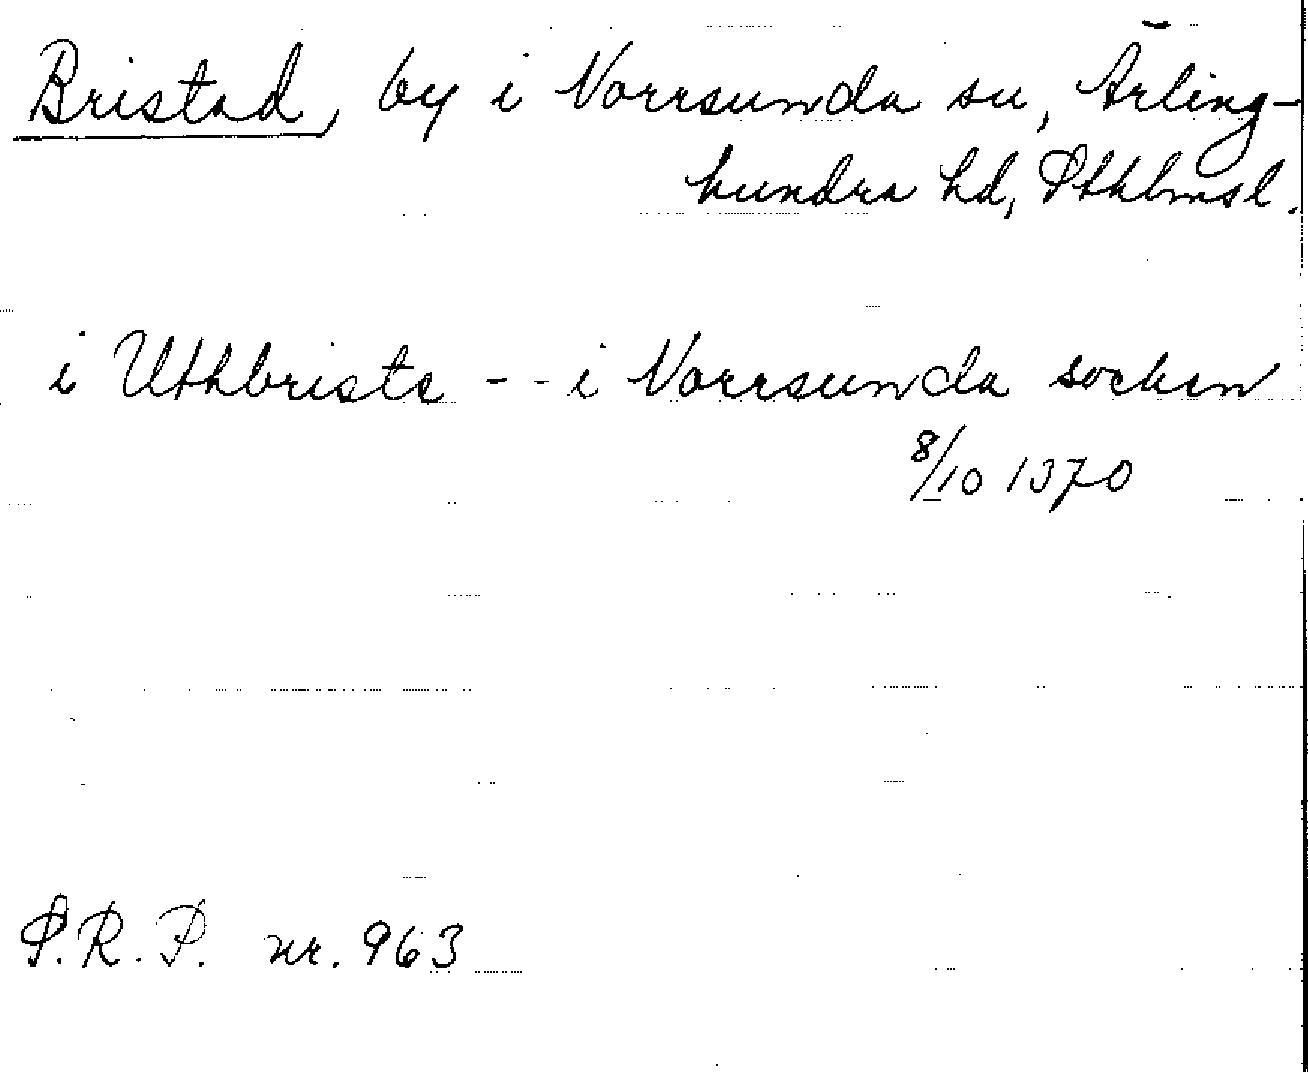 Bristad, by i Norrsunda sn, Ärling-
hundra hd, Sthlmsl.
i Uthbrista - - i Norrsunda sochen
8/10 1370
S.R.P. nr. 963